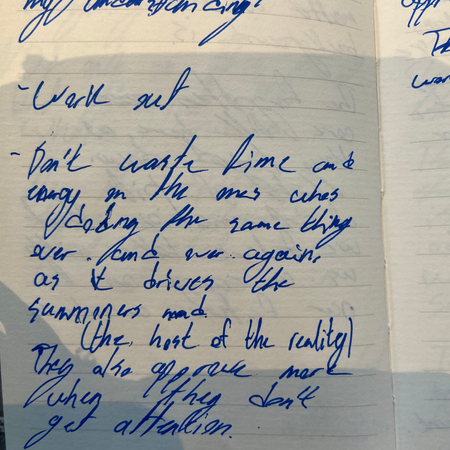 my
- Work out
- Don't waste time and
energy on the ones whos
doing the same thing
over and over again,
as it drives the
summoners mad.
(the host of the reality)
They also approve more
when they don't
get attention.